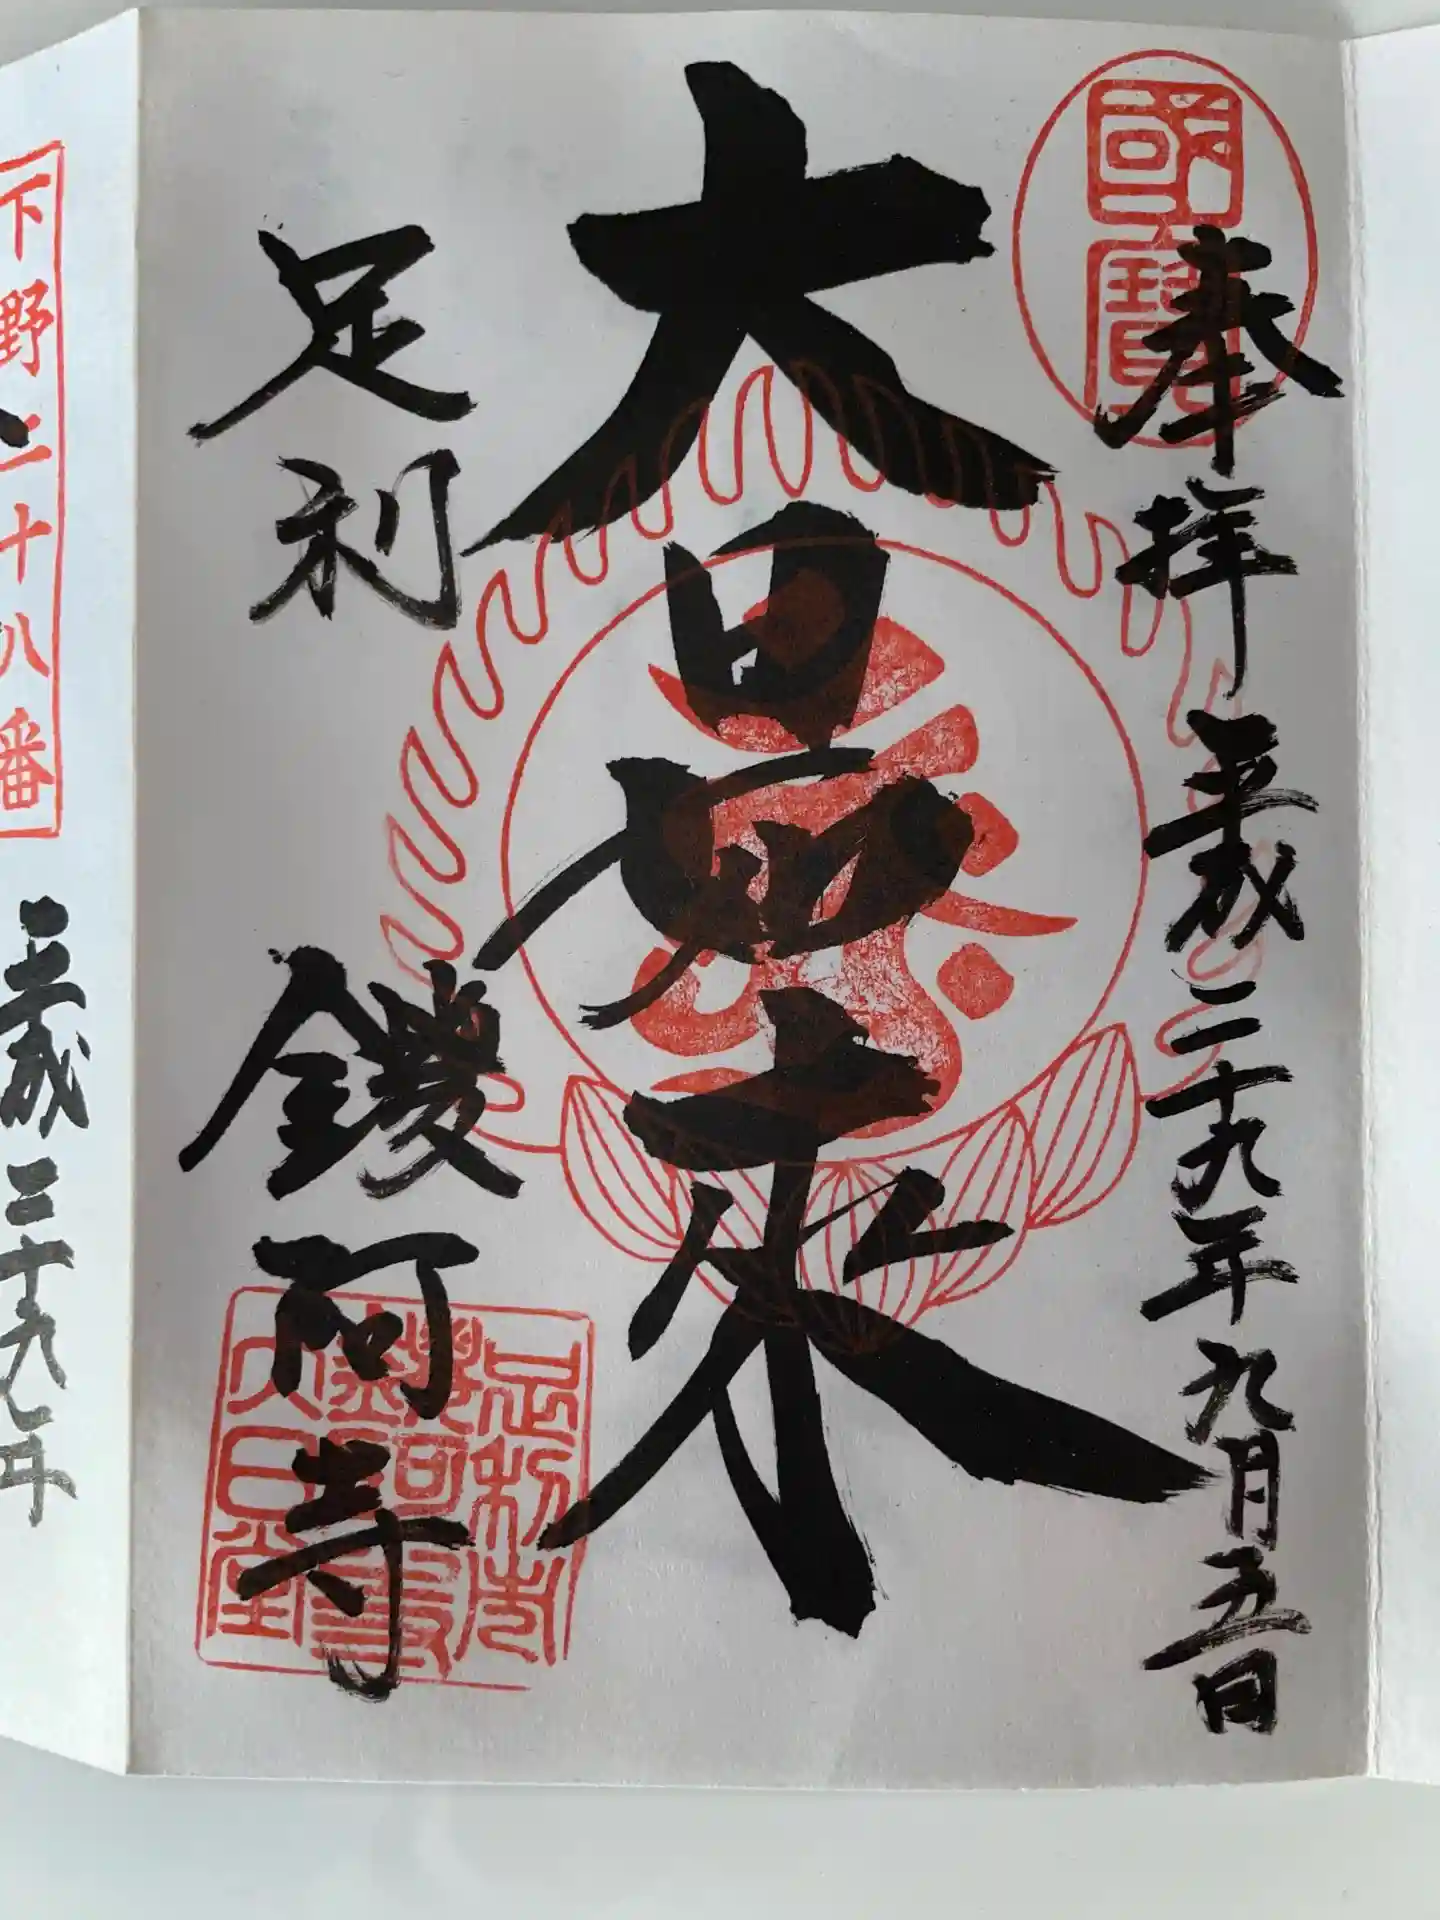 國寳
奉拝 平成二十九年九月五日
大日如来
足利 鑁阿寺
足利市
鑁阿寺
大日堂
下野二十八番
平成二十九年